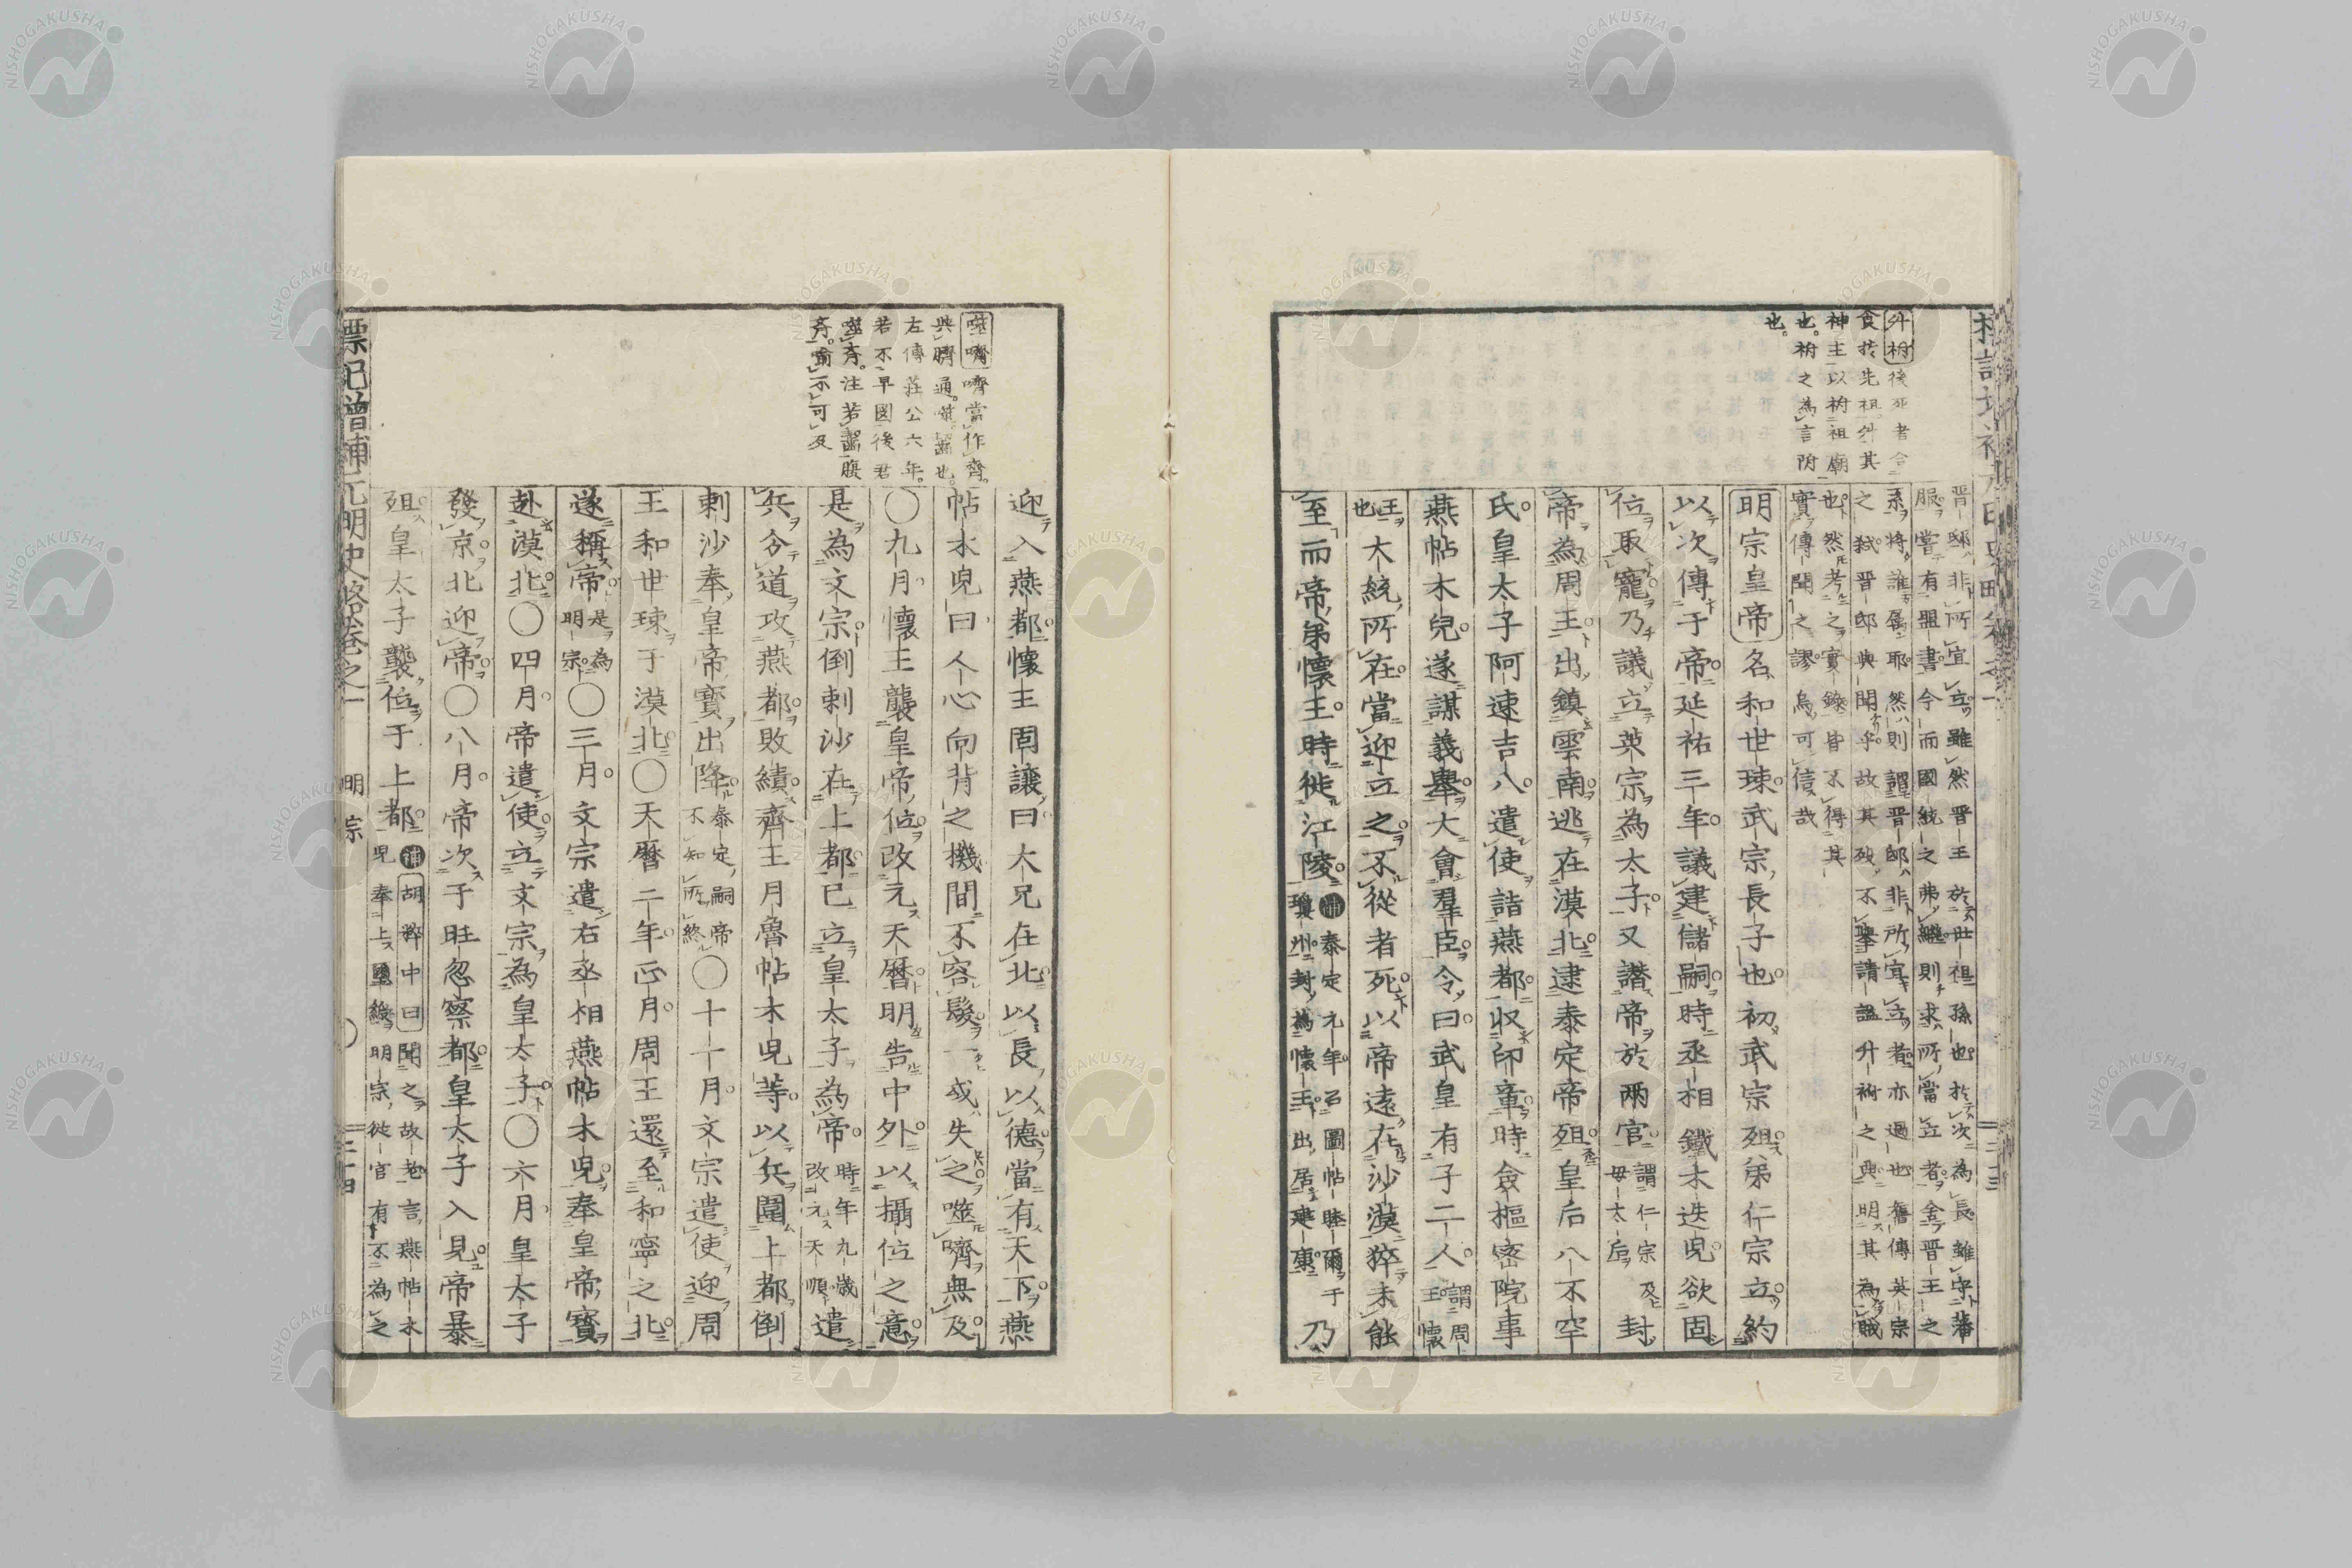 升祔後死者合
食於先祖升其
神主以祔祖廟
也祔之為言附
也
晋邸非所宜立雖然晋王於世祖孫也於次為長雖守藩
服嘗有盟書今而國統之弗繼則求所當立者舍晋王之
系將誰属耶然則謂晋邸非所宜立者亦過也舊傳英宗
之弑晋邸與聞乎故其殁不舉請謚升祔之典明其為賊
也然考之實錄皆不得其
實傳聞之謬烏可信哉
明宗皇帝名和世㻋武宗長子也初武宗殂弟仁宗立約
以次傳于帝延祐三年議建儲嗣時丞相鐵木迭児欲固
位取寵乃議立英宗為太子又譖帝於兩宮謂仁宗及母太后封
帝為周王出鎮雲南逃在漠北逮泰定帝殂皇后八不罕
氏皇太子阿速吉八遣使詣燕都収印章時僉樞密院事
燕帖木児遂謀義舉大會羣臣令曰武皇有子二人謂周王懷
王也大統所在當迎立之不從者死以帝遠在沙漠猝未能
至而帝弟懷王時徙江陵補泰定元年召圖帖睦爾于瓊州封為懷王出居建康乃
標記增補元明史畧卷之一 明宗 二十四
噬嚌嚌當作齊
與臍通噬齧也
左傳莊公六年
若不早圖後君
噬齊注若齧腹
齊喻不可及
迎入燕都懷王固讓曰大兄在北以長以德當有天下燕
帖木児曰人心向背之機間不容髮一或失之噬嚌無及
〇九月懷王襲皇帝位改元天曆明告中外以攝位之意
是為文宗倒剌沙在上都已立皇太子為帝時年九歲改元天順遣
兵分道攻燕都敗績齊王月魯帖木児等以兵圍上都倒
剌沙奉皇帝寶出降泰定嗣帝不知所終〇十一月文宗遣使迎周
王和世㻋于漠北〇天曆二年正月周王還至和寧之北
遂稱帝是為明宗〇三月文宗遣右丞相燕帖木児奉皇帝寶
赴漠北〇四月帝遣使立文宗為皇太子〇六月皇太子
發京北迎帝〇八月帝次于旺忽察都皇太子入見帝暴
殂皇太子襲位于上都補胡粹中曰聞之故老言燕帖木児奉上璽綬明宗從官有不為之